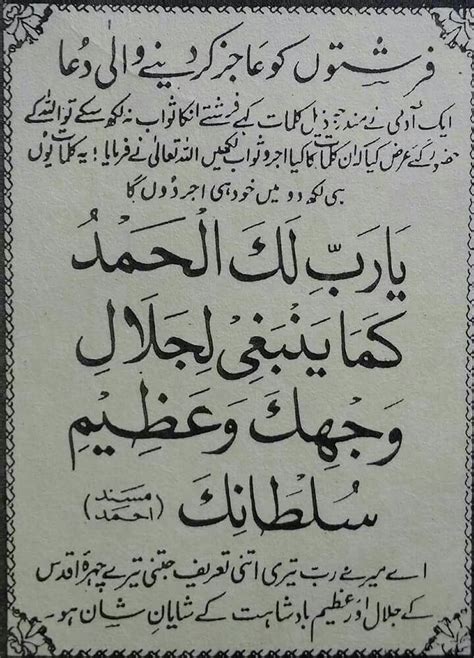 فرشتوں کو عاجز کر دینے والی دُعا
ایک آدمی نے مندرجہ ذیل کلمات کہے فرشتے انکا ثواب نہ لکھ سکے تو اللہ کے
حضور گئے عرض کیا کہ ان کلمات کا کیا اجر و ثواب لکھیں اللہ تعالیٰ نے فرمایا! یہ کلمات یوں
ہی لکھ دو میں خود ہی اجر دُوں گا
يَارَبِّ لَكَ الْحَمْدُ
كَمَا يَنْبَغِيْ لِجَلَالِ
وَجْهِكَ وَعَظِيْمِ
سُلْطَانِكَ (مسند احمد)
اے میرے رب تیری اتنی تعریف جتنی تیرے چہرۂ اقدس
کے جلال اور عظیم بادشاہت کے شایانِ شان ہو۔